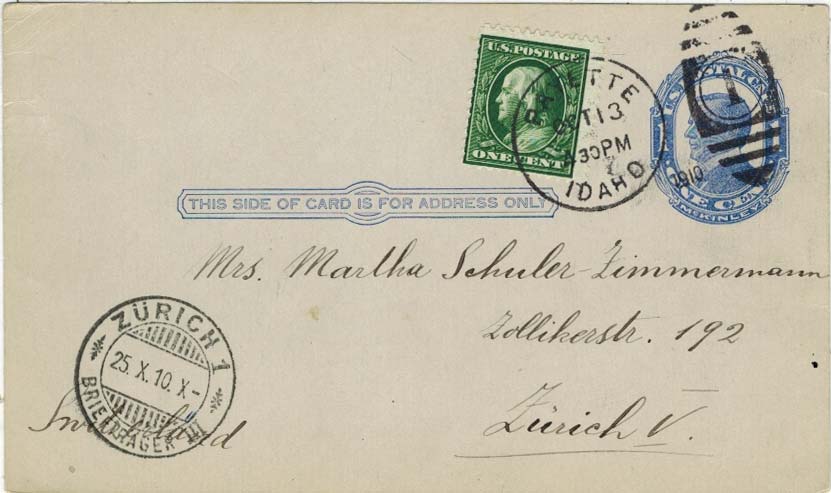 U.S. POSTAGE
ONE CENT
PAYETTE
OCT 13
4.30PM
IDAHO
1910
1
U.S. POSTAL CARD
ONE CENT
McKINLEY
THIS SIDE OF CARD IS FOR ADDRESS ONLY
Mrs. Martha Schuler-Zimmermann
Zollikerstr. 192
Zürich V.
Switzerland
ZÜRICH 1
25. X. 10. X-
BRIEFTRÄGER III